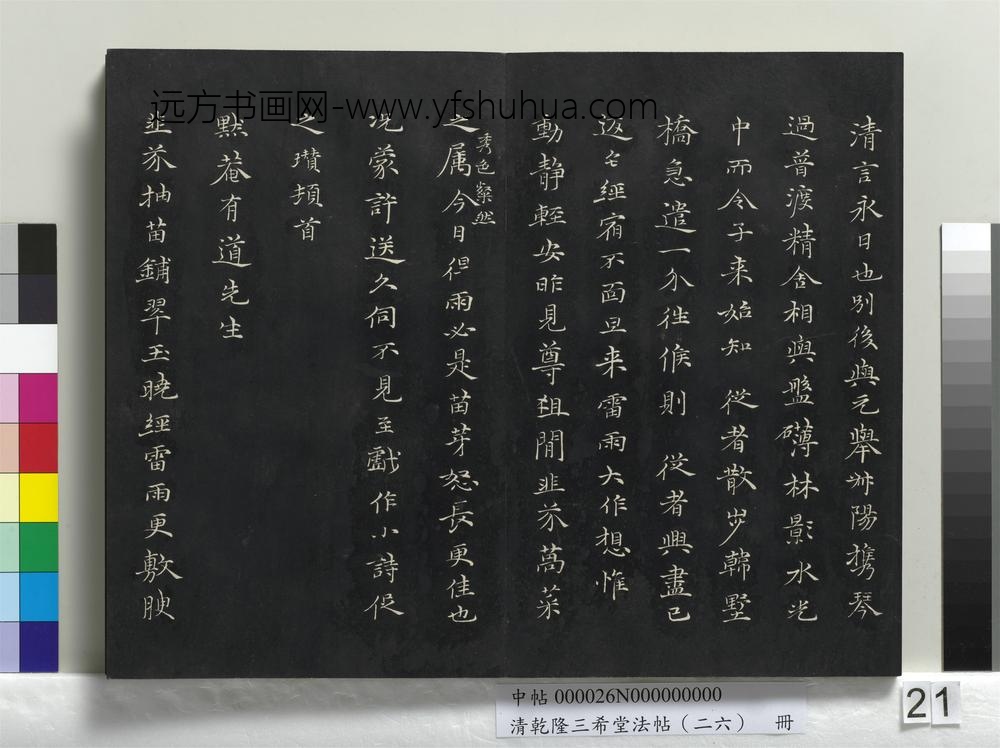 清言永日也別後與元舉衝陽攜琴
過普渡精舍相與盤礴林影水光
中而令子來始知 從者散步韓墅
橋急遣一介往候則 從者興盡已
返宅經宿不面旦来雷雨大作想惟
動靜輕安昨見尊俎間韭芥萵菜
之属秀色粲然今日得雨必是苗芽怒長更佳也
况蒙許送久伺不見至戲作小詩促
之瓚頓首
默菴有道先生
韭芥抽苗鋪翠玉曉經雷雨更敷腴
远方书画网-www.yfshuhua.com
中帖 000026N000000000
清乾隆三希堂法帖（二六） 冊
21